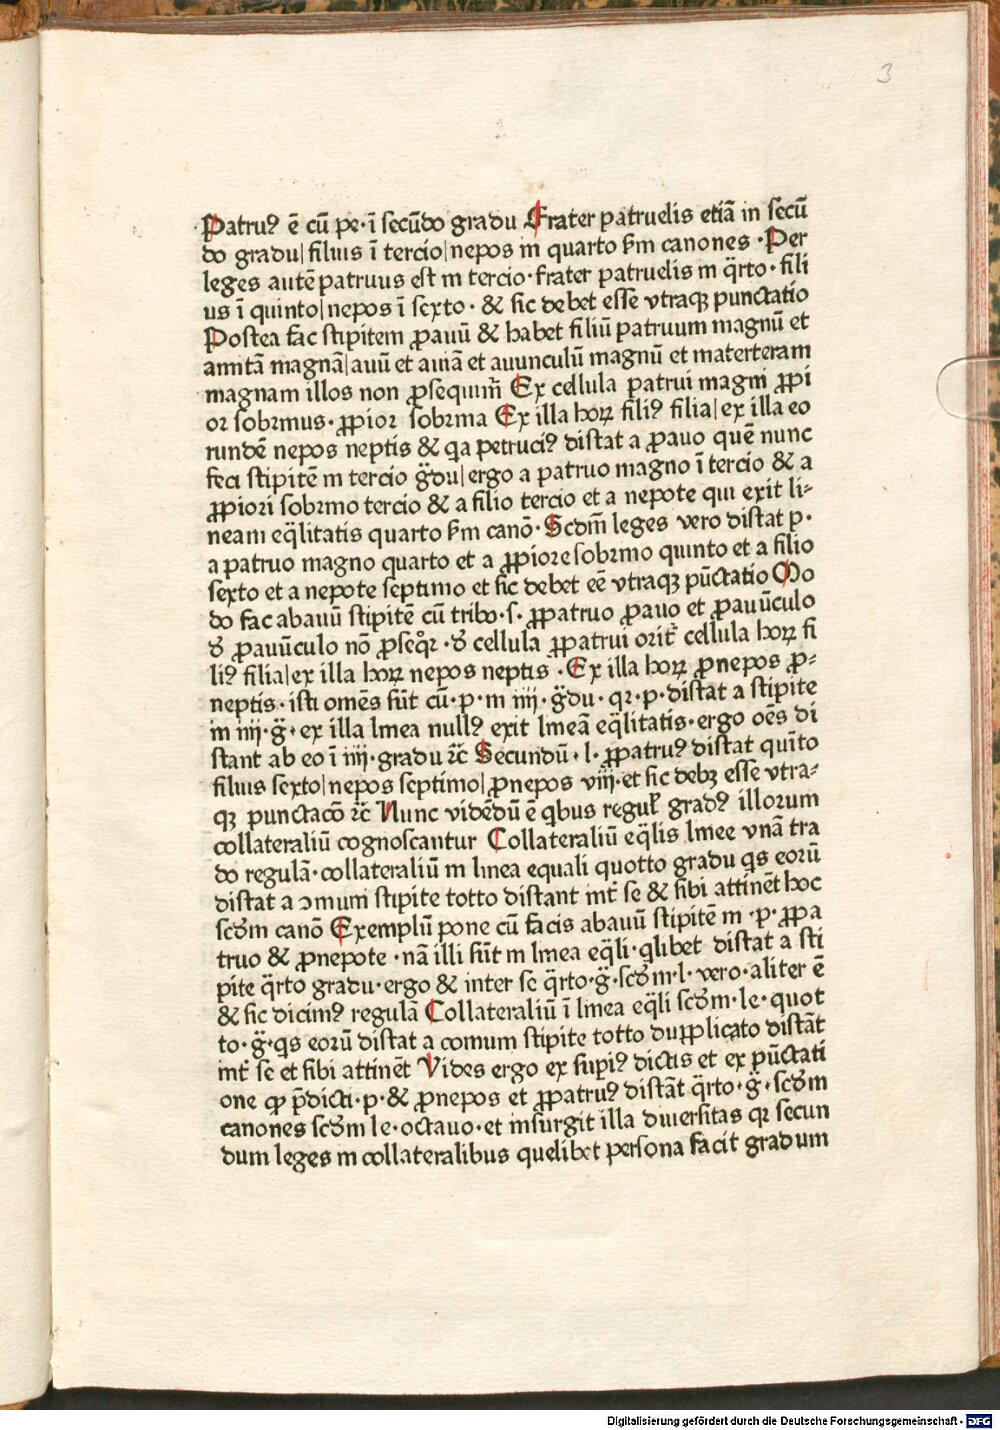 3
Patruꝰ ē cū pe·ī secūdo gradu Frater patruelis etiā in secū
do gradu|filius ī tercio|nepos in quarto ẜm canones ·Per
leges autē patruus est in tercio·frater patruelis in q̈rto·fili
us ī quinto|nepos ī sexto·& sic debet esse vtraqꝫ punctatio
Postea fac stipitem ꝓauū & habet filiū patruum magnū et
amitā magnā|auū et auiā et auunculū magnū et materteram
magnam illos non ꝓsequim̄ Ex cellula patrui magni ꝓpi
or sobrinus·ꝓpior sobrina Ex illa horꝝ filiꝰ filia|ex illa eo
rundē nepos neptis & qa petruciꝰ distat a ꝓauo quē nunc
feci stipitē in tercio g̈du|ergo a patruo magno ī tercio & a
ꝓpiori sobrino tercio & a filio tercio et a nepote qui exit li⸗
neam eq̈litatis quarto ẜm canō·Scdm̄ leges vero distat p·
a patruo magno quarto et a ꝓpiore sobrino quinto et a filio
sexto et a nepote septimo et sic debet eē vtraqꝫ pūctatio Mo
do fac abauū stipitē cū tribo·s·ꝓpatruo ꝓauo et ꝓauūculo
ꝺ̄ ꝓauūculo nō ꝓseq̊r·ꝺ̄ cellula ꝓpatrui orit̄ cellula horꝝ fi
liꝰ filia|ex illa horꝝ nepos neptis ·Ex illa horꝝ ꝓnepos ꝓ⸗
neptis·isti omēs sūt cū·p·in iiij·g̈du·qꝛ·p·distat a stipite
in iiij·g̈·ex illa linea nullꝰ exit lineā eq̈litatis·ergo oēs di
stant ab eo ī iiij·gradu ꝛc̄ Secundū·l·ꝓpatruꝰ distat quīto
filius sexto|nepos septimo|ꝓnepos viij·et sic debꝫ esse vtra⸗
qꝫ punctacō ꝛc̄ Nunc vidēdū ē qbus regul̄ gradꝰ illorum
collateraliū cognoscantur Collateraliū eq̈lis linee vnā tra
do regulā·collateraliū in linea equali quotto gradu qs eorū
distat a ↄmuni stipite totto distant int̄ se & sibi attinēt hoc
scꝺm canō Exemplū pone cū facis abauū stipitē in·p·ꝓpa
truo & ꝓnepote·nā illi sūt in linea eq̈li·qlibet distat a sti
pite q̈rto gradu·ergo & inter se q̈rto·g̈·scꝺm·l·vero·aliter ē
& sic dicimꝰ regulā Collateraliū ī linea eq̈li scꝺm·le·quot
to·g̈·qs eorū distat a comuni stipite totto duꝓlicato distāt
int̄ se et sibi attinēt Vides ergo ex supiꝰ dictis et ex pūctati
one ꝙ p̄dicti·p·& ꝓnepos et ꝓpatruꝰ distāt q̈rto·g̈·scꝺm
canones scꝺm le·octauo·et insurgit illa diuersitas qꝛ secun
dum leges in collateralibus quelibet persona facit gradum
Digitalisierung gefördert durch die Deutsche Forschungsgemeinschaft - DFG